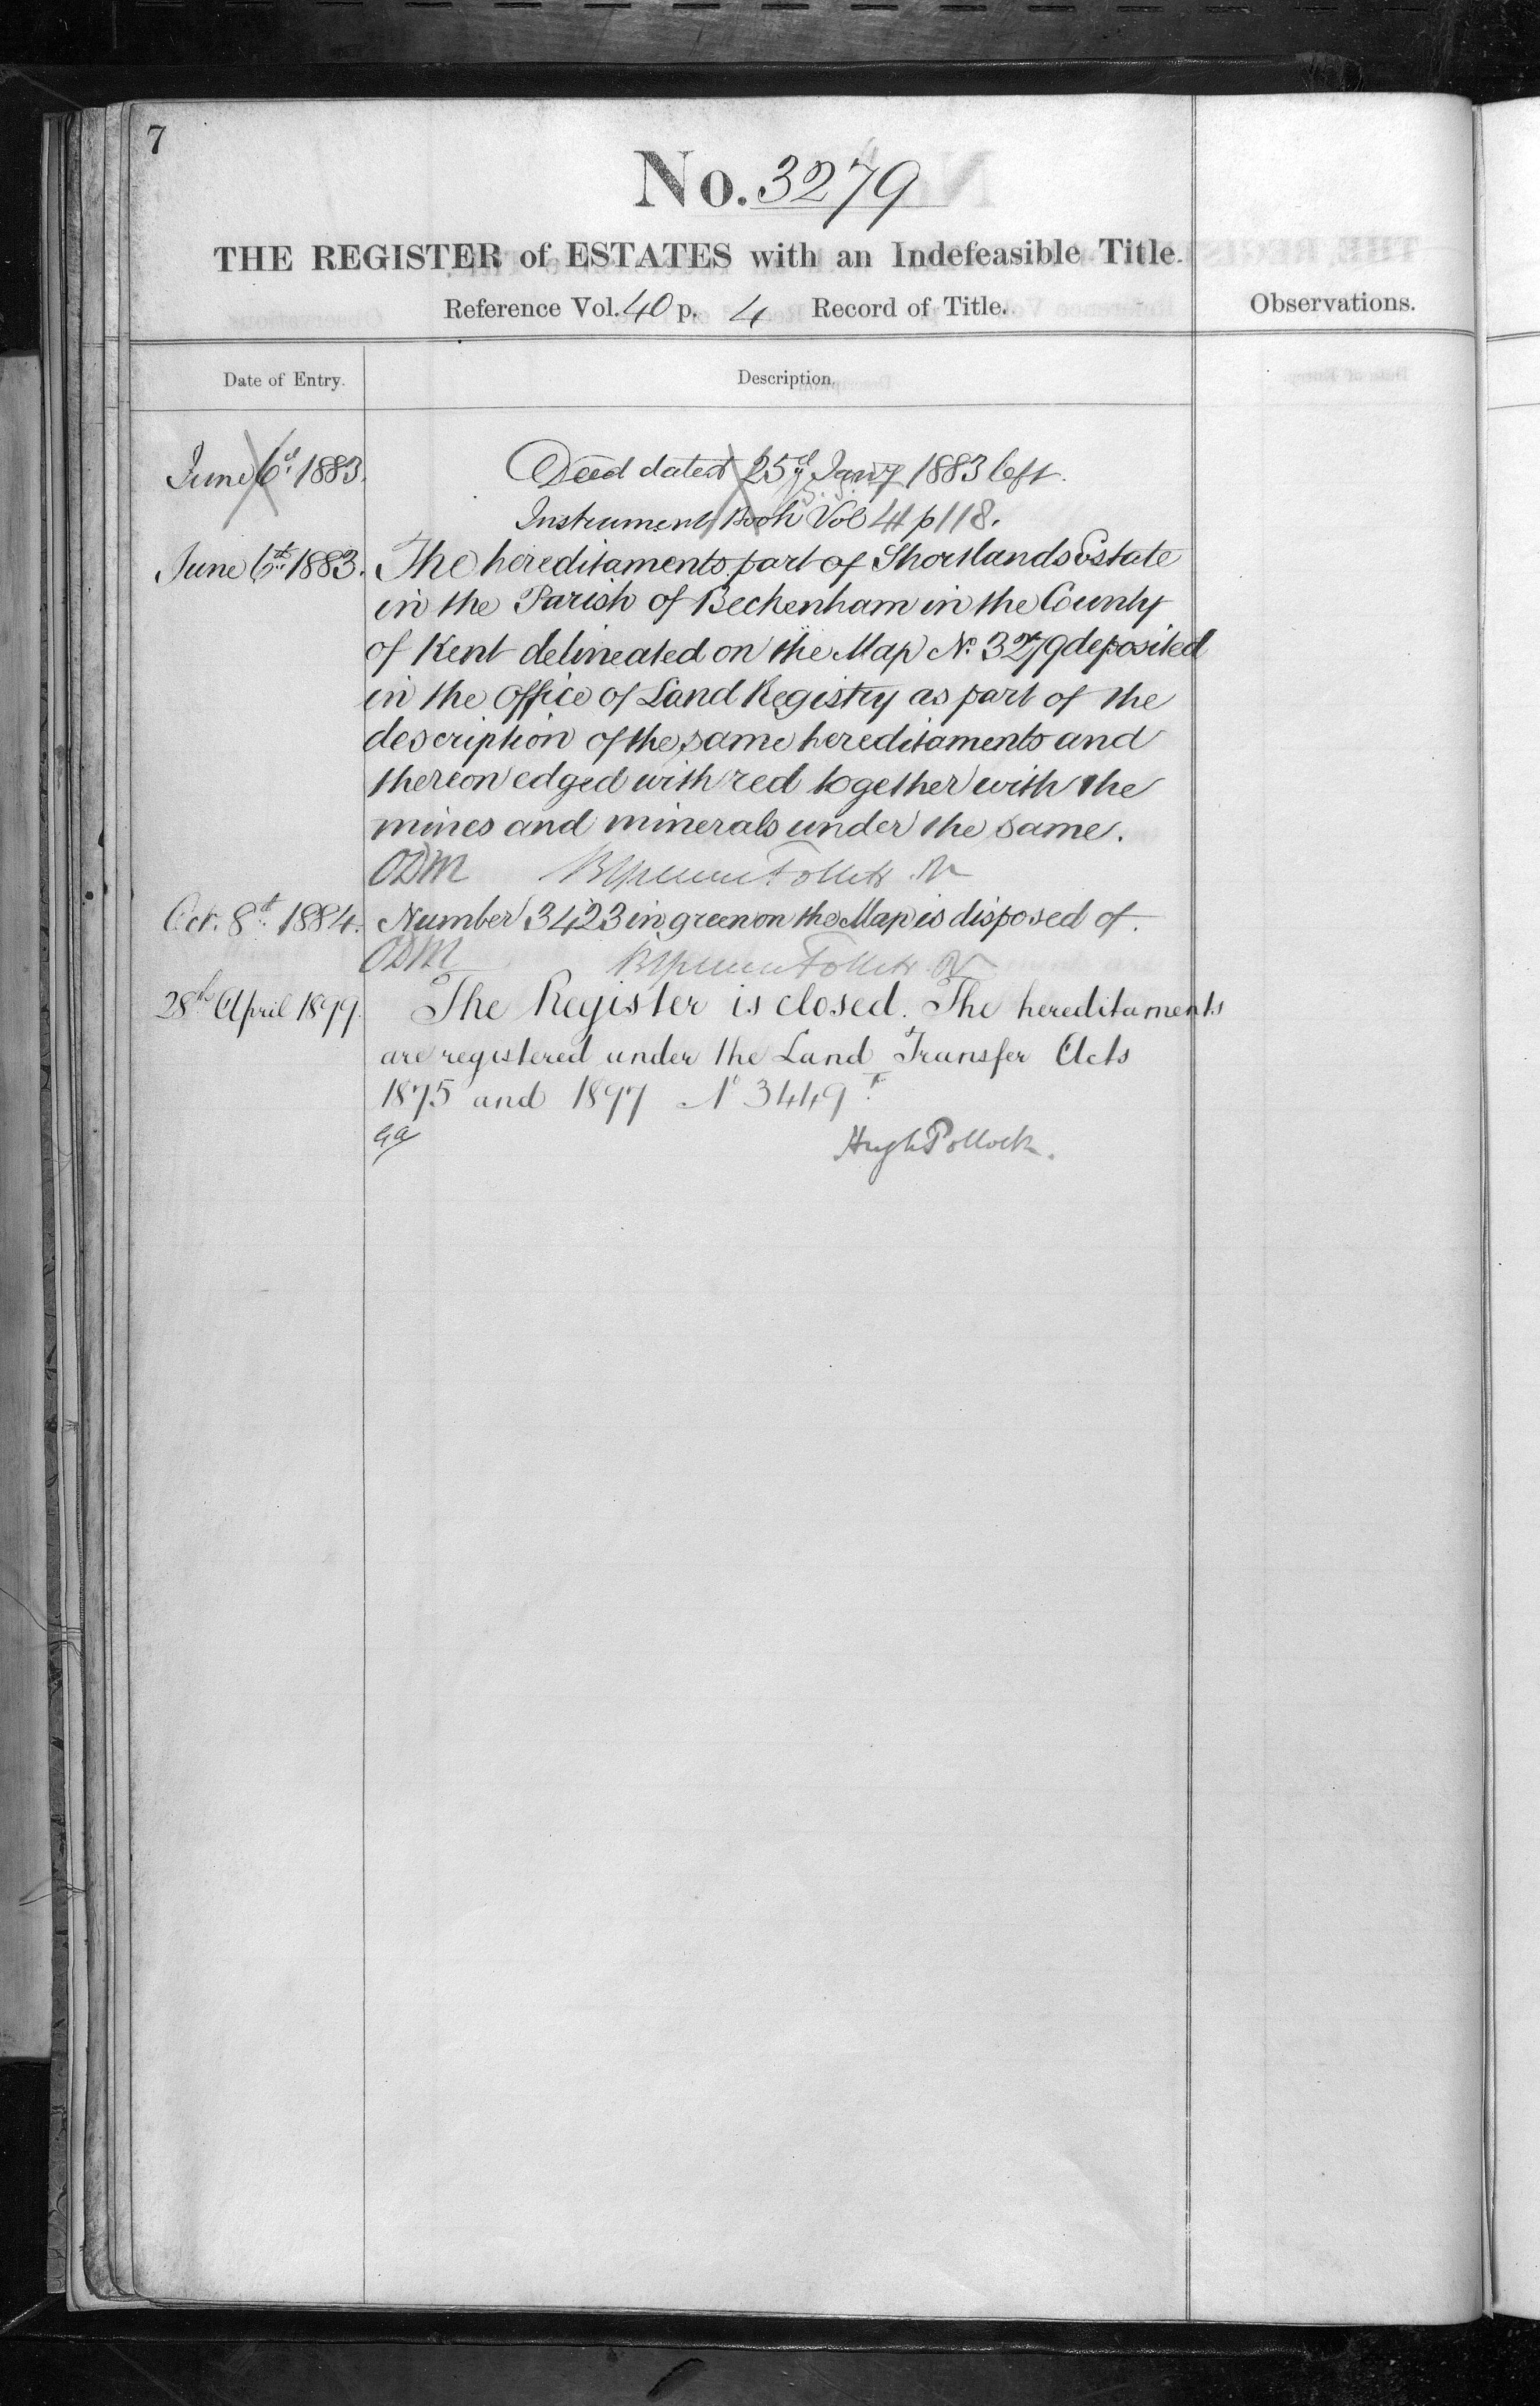 7
No. 3279
THE REGISTER of ESTATES with an Indefeasible Title.
Reference Vol. 40 p. 4 Record of Title.
Observations.
Date of Entry.
Description.
June 6th 1883. Deed dated 25th Jany 1883 left.
Instrument Book Vol 41 p 118.
June 6th 1883. The hereditaments part of Shortlands Estate
in the Parish of Beckenham in the County
of Kent delineated on the Map No. 3279 deposited
in the Office of Land Registry as part of the
description of the same hereditaments and
thereon edged with red together with the
mines and minerals under the same.
ODM Follett
Oct. 8th 1884. Number 3423 in green on the Map is disposed of.
ODM Follett
28th April 1899. The Register is closed. The hereditaments
are registered under the Land Transfer Acts
1875 and 1897 No 3449
Hugh Pollock.